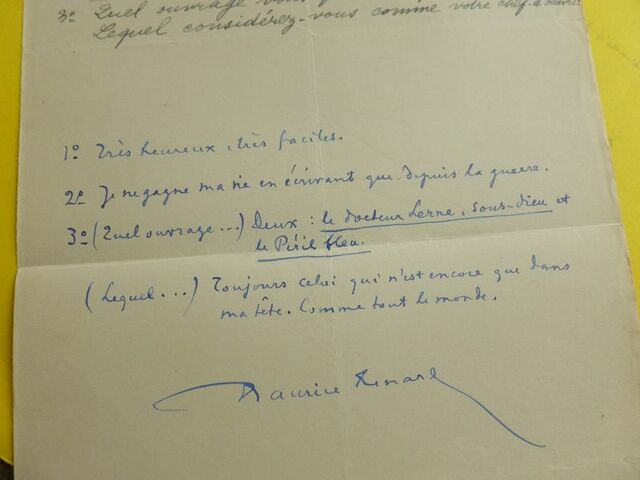 3º Quel ouvrage vous
Lequel considérez-vous comme votre chef-d'œuvre
1º Très heureux, très faciles.
2º Je ne gagne ma vie en écrivant que depuis la guerre.
3º (Quel ouvrage...) Deux : le docteur Lerne, sous-dieu et
le Péril bleu.
(Lequel...) Toujours celui qui n'est encore que dans
ma tête. Comme tout le monde.
Maurice Renard